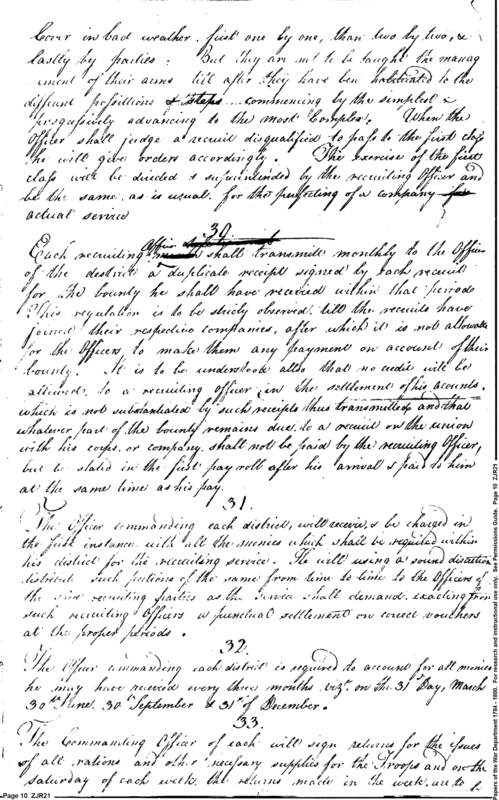 Cover in bad weather. first one by one, than two by two, &
lastly by parties: But they are not to be taught the manag
ement of their arms till after they have been habituated to the
different possittions & steps ... commencing by the simplest &
progressively advancing to the most Complex. When the
Officer shall judge a recruit disqualified to pass to the first class
he will give orders accordingly. The exercise of the first
class will be directed & superintended by the recruiting Officer and
be the same, as is usual, for the perfecting of a company for
actual service
30
Each recruiting Officer shall transmit monthly to the Officer
of the district a duplicate receipt signed by each recruit
for the bounty he shall have received within that periode
This regulation is to be strictly observed, till the recruits have
joined their respective companies, after which it is not allowable
for the Officers, to make them any payment on account of their
bounty. It is to be understood also that no credit will be
allowed, to a recruiting officer, in the settlement of his acounts,
which is not substantiated by such receipts thus transmitted and that
whatever part of the bounty remains due, to a recruit on the union
with his corps. or company, shall not be paid by the recruiting Officer,
but to stated in the first pay roll after his arrival & paid to him
at the same time as his pay.
31.
The Officer commanding each district, will receive, & be charged in
the first instance with all the monies which shall be required within
his district for the recruiting service. He will using a sound discretion
distribute such portions of the same from time to time to the Officers of
the recruiting parties as the service shall demand, exacting from
such recruiting Officers a punctual settlement on correct vouchers
at the proper periods.
32.
The Officer commanding each district is required to account for all monies
he may have received every three months vizt. on the 31st Day, March
30th June. 30 September & 31st of December.
33.
The Commanding Officer of each will sign returns for the issues
of all rations and other necessary supplies for the Troops and on the
saturday of each week, the returns made in the week, are to
Page 10 ZJR21
Papers of the War Department 1784 - 1800. For research and instructional use only. See Permissions Guide. Page 10 ZJR21